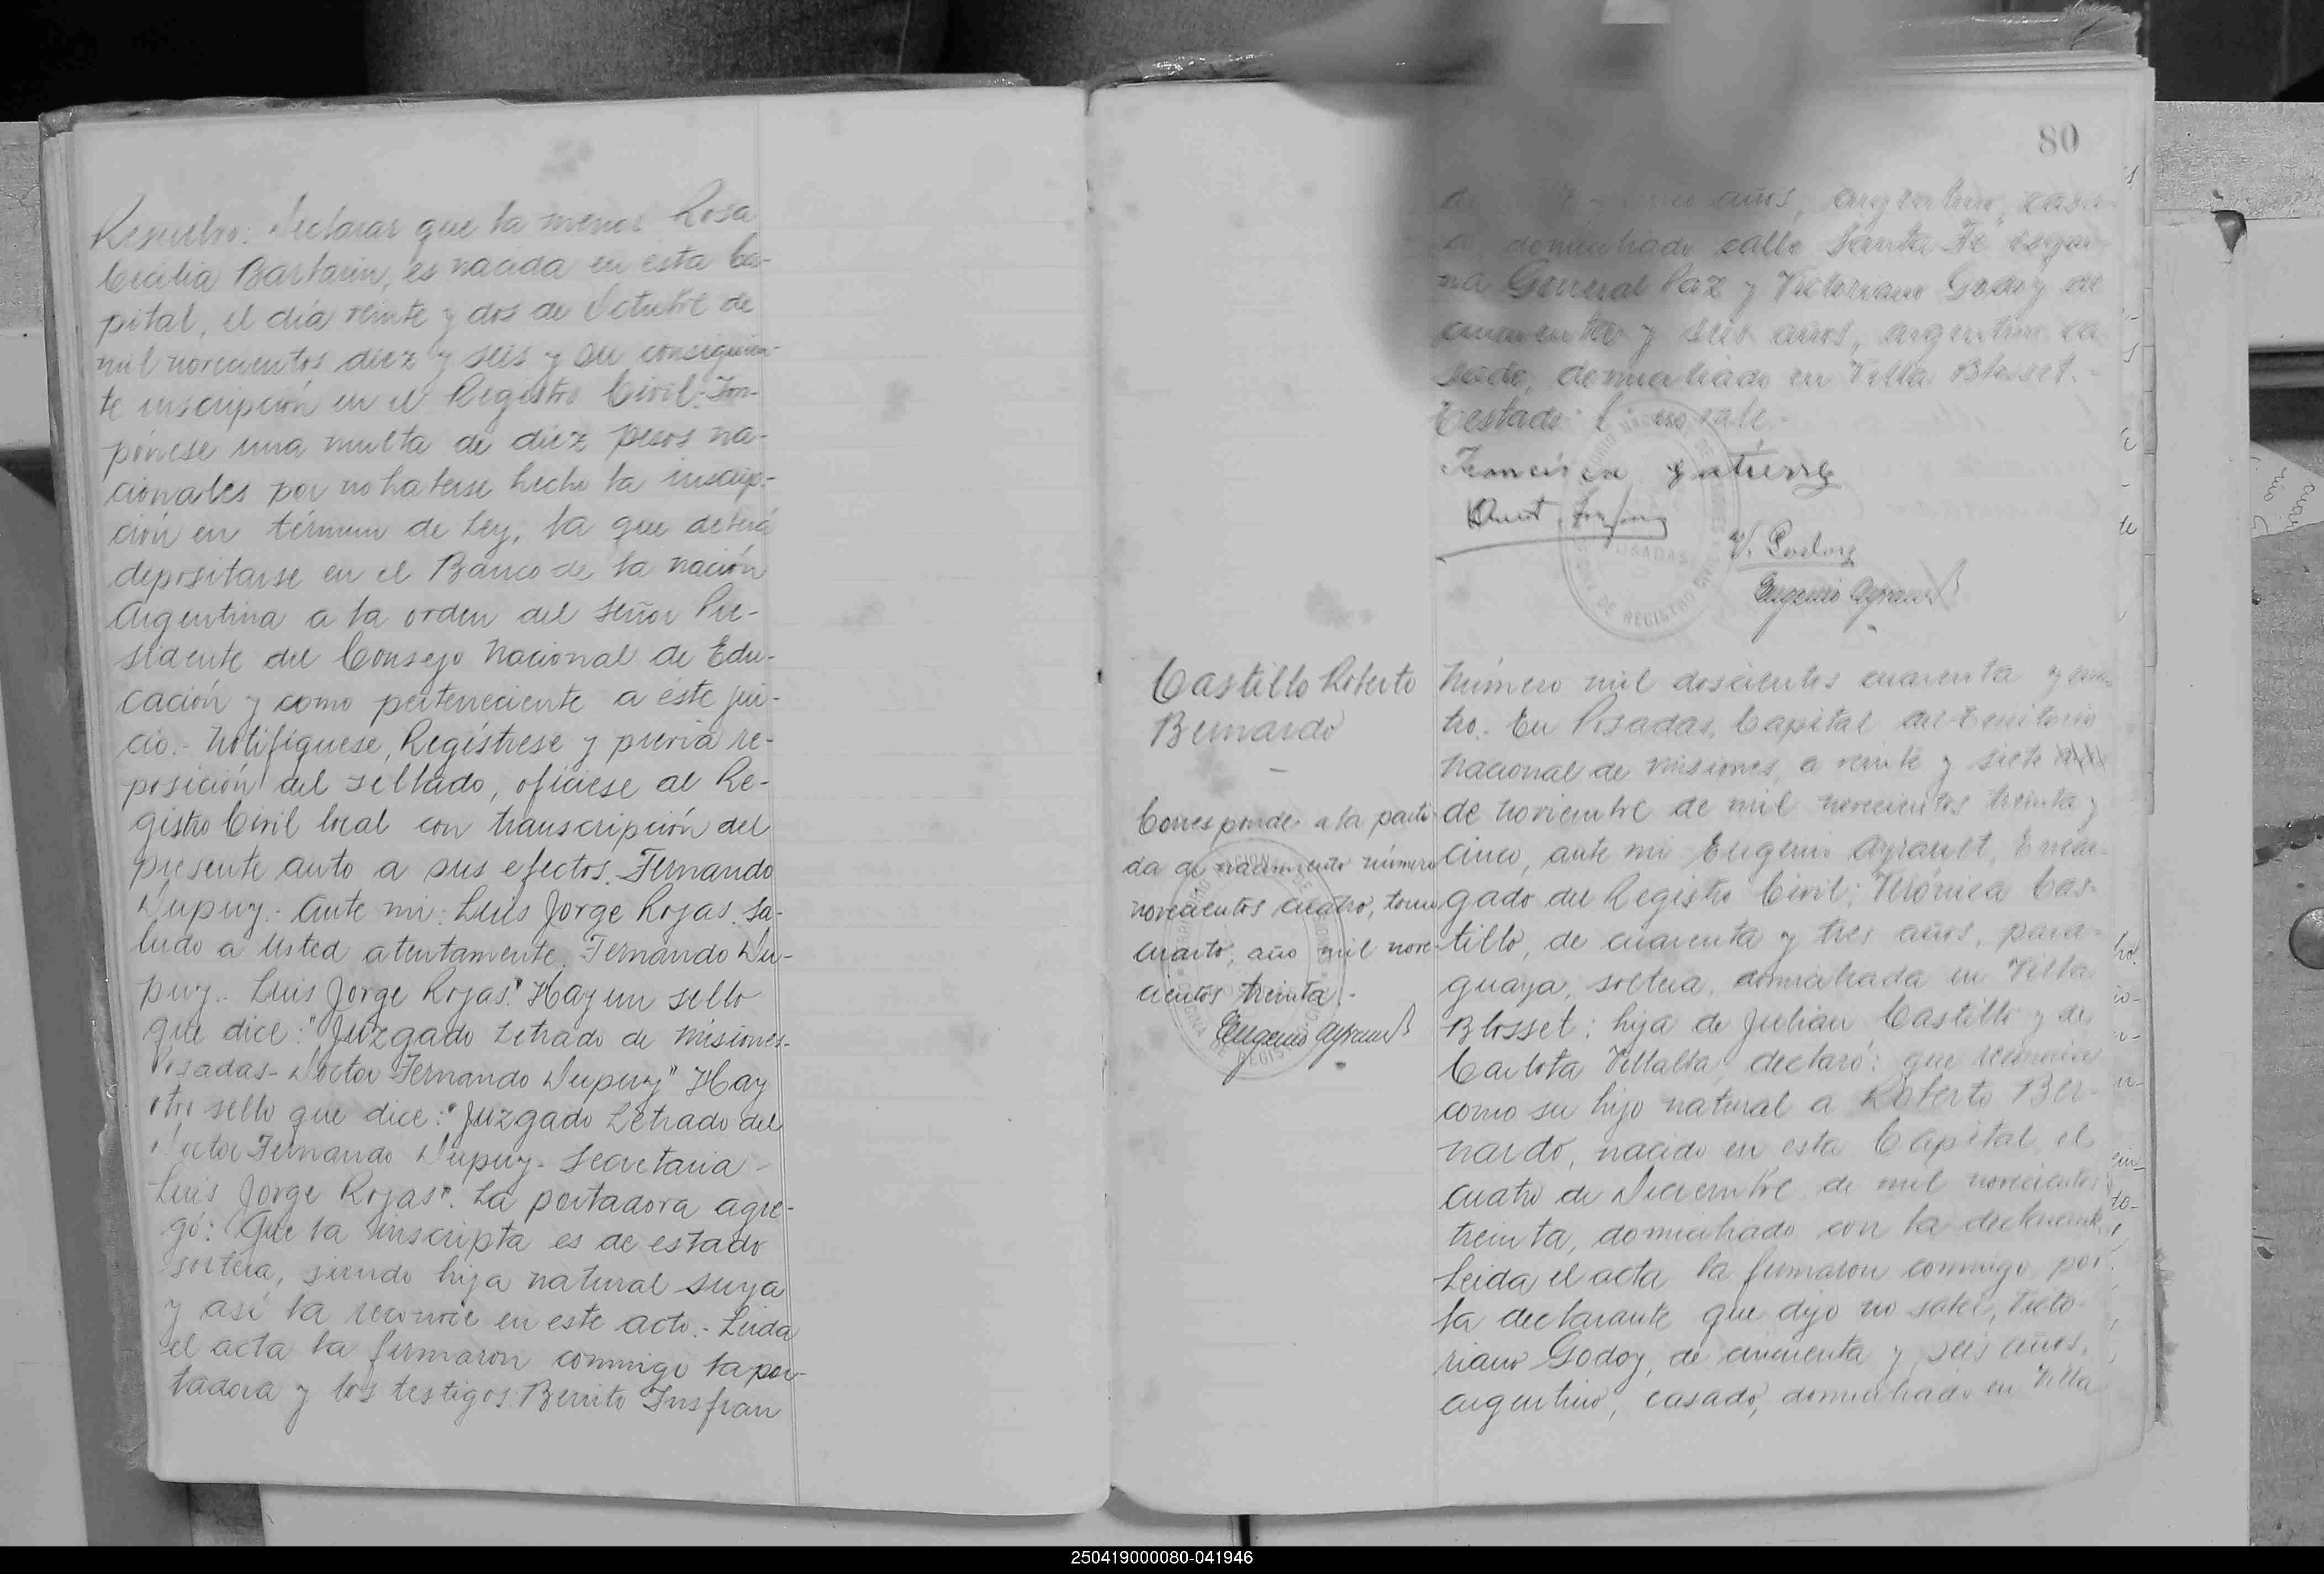 Resuelvo: Declarar que la menor Rosa
Cecilia Barbarin, es nacida en esta Ca-
pital, el día veinte y dos de Octubre de
mil novecientos diez y seis y su consiguien-
te inscripción en el Registro Civil. Im-
pónese una multa de diez pesos na-
cionales por no haberse hecho la inscrip-
ción en término de Ley, la que deberá
depositarse en el Banco de la nación
Argentina a la orden del señor Pre-
sidente del Consejo Nacional de Edu-
cación y como perteneciente a éste jui-
cio.- Notifíquese, Regístrese y previa re-
posición del sellado, ofíciese al Re-
gistro Civil local con transcripción del
presente auto a sus efectos. Fernando
Dupuy.- Ante mi: Luis Jorge Rojas. Sa-
ludo a Usted atentamente. Fernando Du-
puy.- Luis Jorge Rojas." Hay un sello
que dice: "Juzgado Letrado de Misiones-
Posadas- Doctor Fernando Dupuy" Hay
otro sello que dice: "Juzgado Letrado del
Doctor Fernando Dupuy- Secretaria-
Luis Jorge Rojas". La portadora agre-
gó: Que la inscripta es de estado
soltera, siendo hija natural suya
y así la reconoce en este acto.- Leida
el acta la firmaron conmigo la por-
tadora y los testigos: Benito Insfran
80
años, argentino, casa-
do, domiciliado calle Santa Fe esqui-
na General Paz y Victoriano Godoy de
cincuenta y seis años, argentino, ca-
sado, domiciliado en Villa Blosset.-
Testado: no vale.-
Francisca Gutierrez
V. Godoy
Eugenio Ayrault
Castillo Roberto
Bernardo
Corresponde a la parti-
da de nacimiento número
novecientos cuatro, tomo
cuarto, año mil nove-
cientos treinta.-
Eugenio Ayrault
Número mil doscientos cuarenta y cua-
tro.- En Posadas, Capital del Territorio
Nacional de Misiones, a veinte y siete
de Noviembre de mil novecientos treinta y
cinco, ante mi Eugenio Ayrault, Encar-
gado del Registro Civil: Verónica Cas-
tillo, de cuarenta y tres años, para-
guaya, soltera, domiciliada en Villa
Blosset; hija de Julián Castillo y de
Carlota Villalba, declaró: que reconocía
como su hijo natural a Roberto Ber-
nardo, nacido en esta Capital, el
cuatro de Diciembre de mil novecientos
treinta, domiciliado con la declarante.
Leida el acta la firmaron conmigo por
la declarante que dijo no saber, Victo-
riano Godoy, de cincuenta y seis años,
argentino, casado, domiciliado en Villa
250419000080-041946